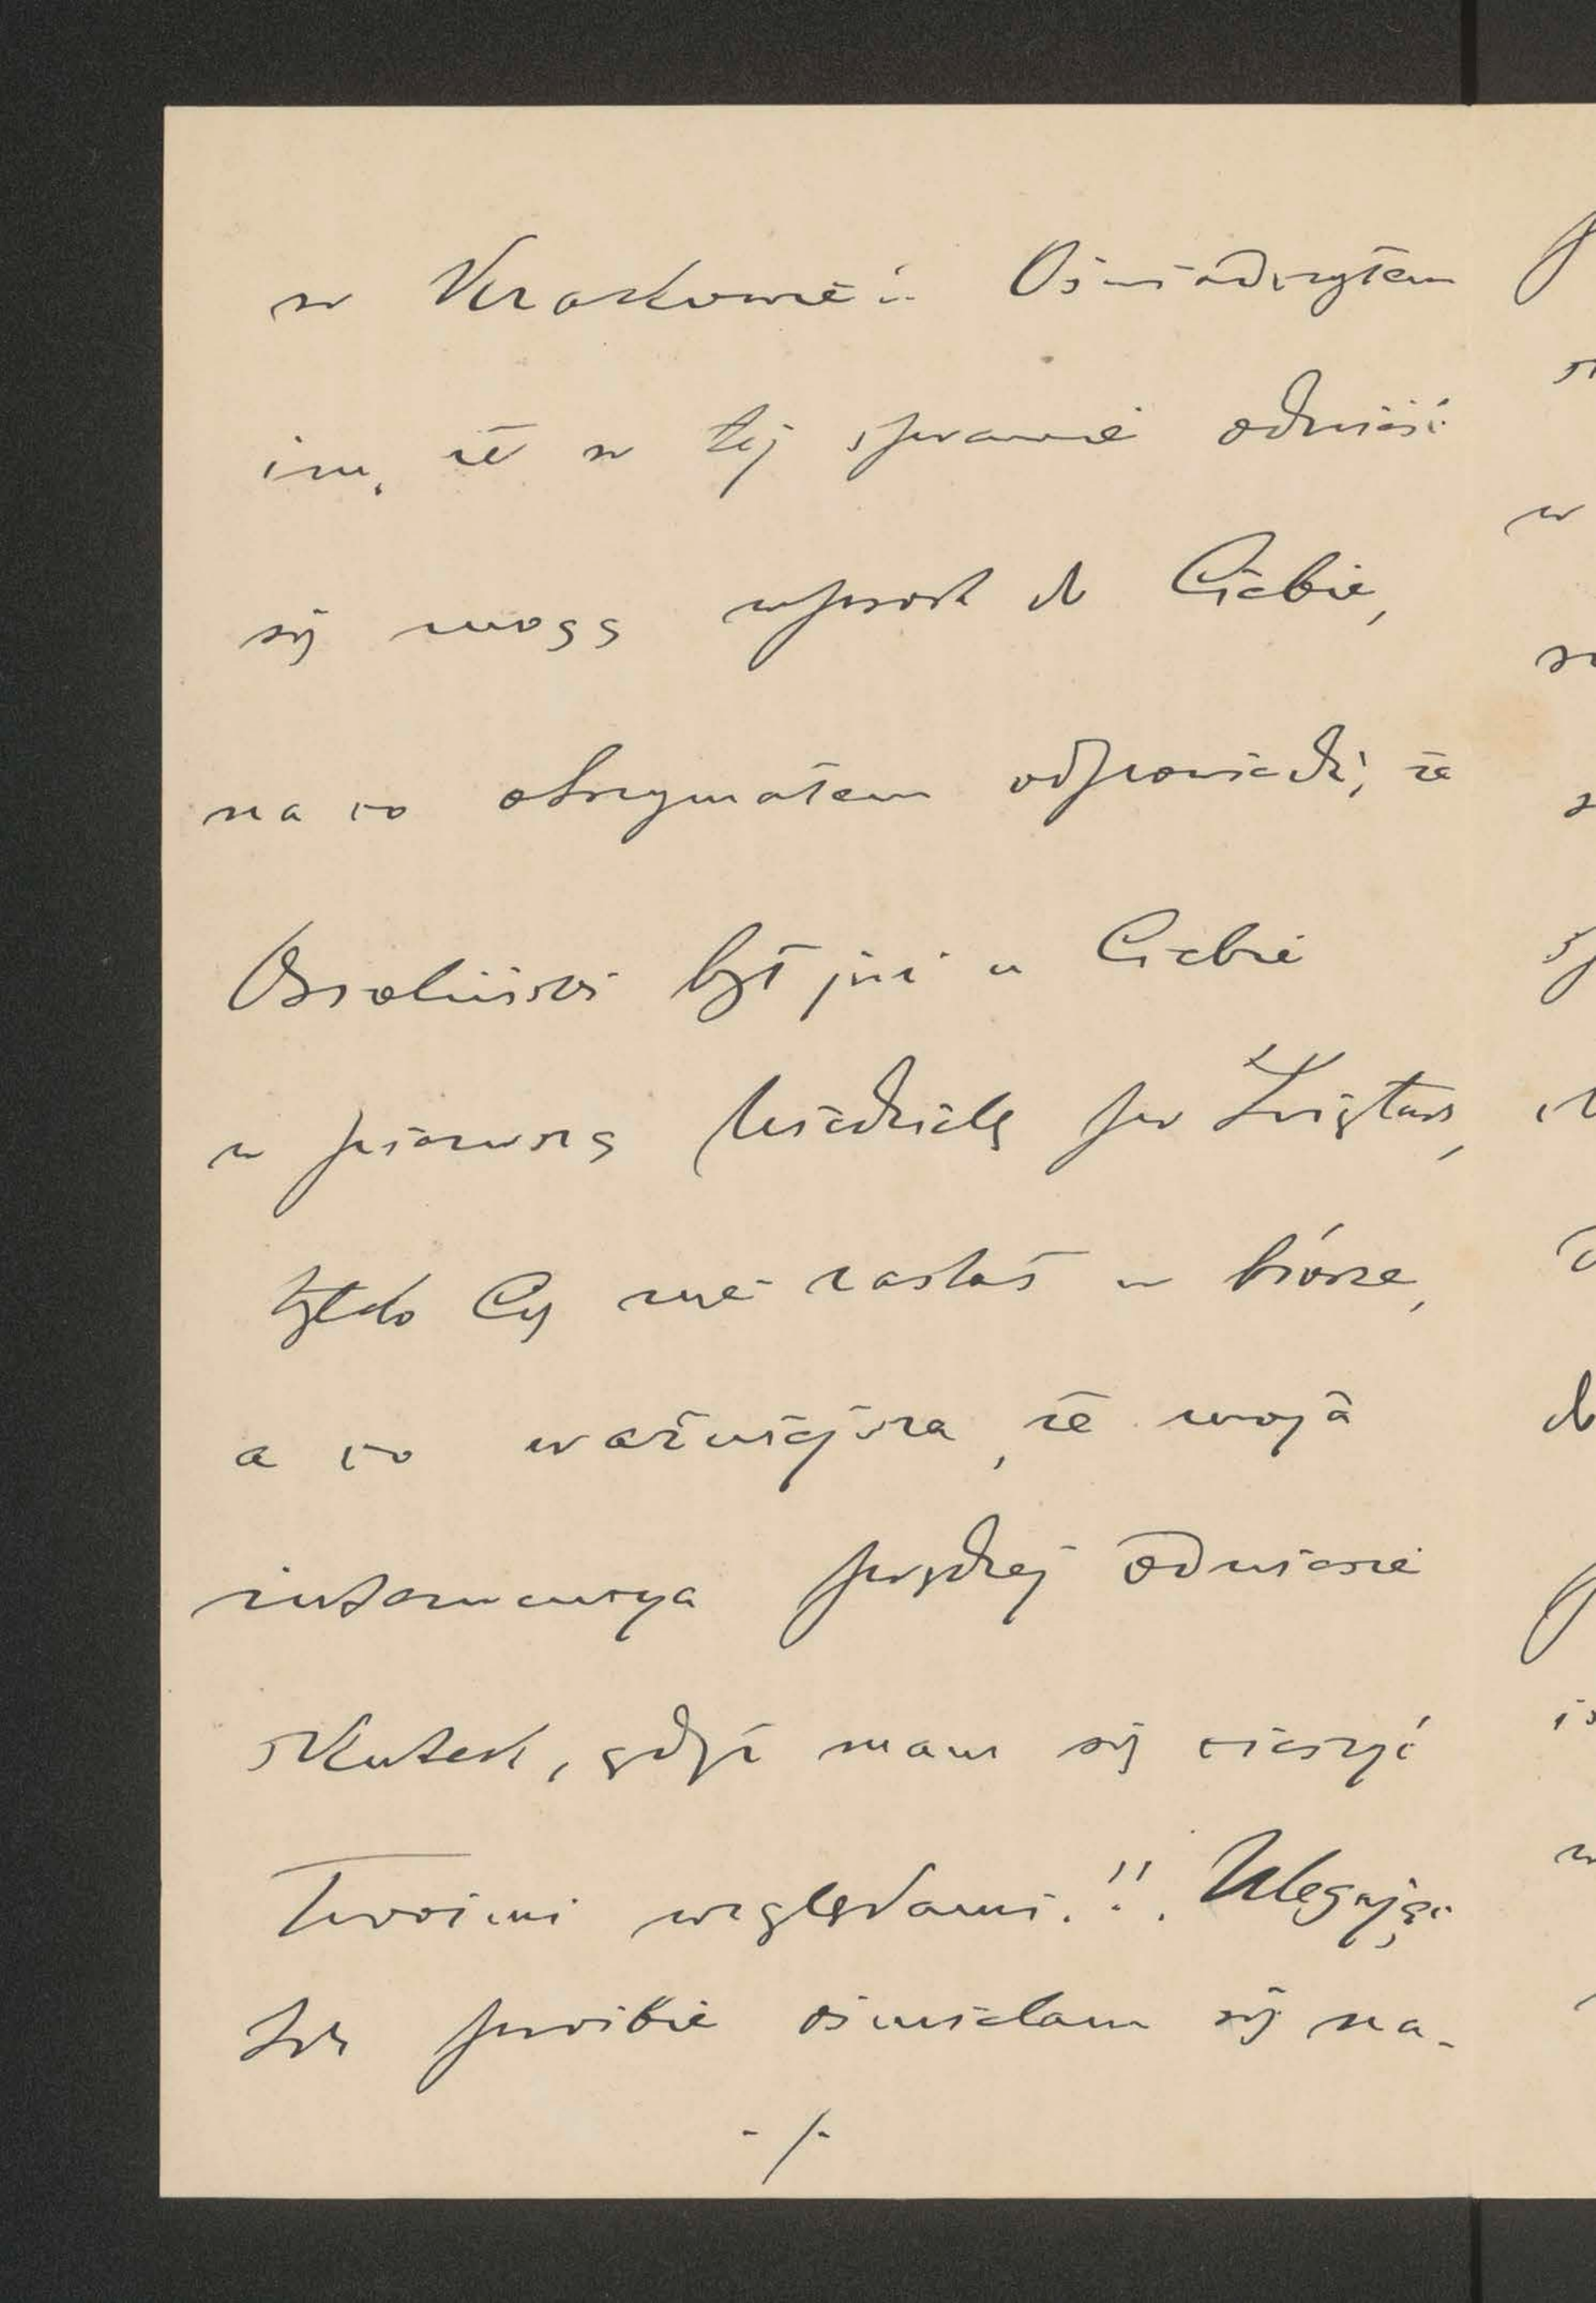 w Krakowie. Oświadczyłem
im, że w tej sprawie odnieść
się mogą wprost do Ciebie,
na co otrzymałem odpowiedź, że
Ossoliński był już u Ciebie
w pierwszą Niedzielę po Świętach,
tylko Cię nie zastał w biórze,
a co ważniejsza, że moja
interwencya prędzej odniesie
skutek, gdyż mam się cieszyć
Twoimi względami.!!. Ulegając
tej prośbie ośmielam się na-
-/-